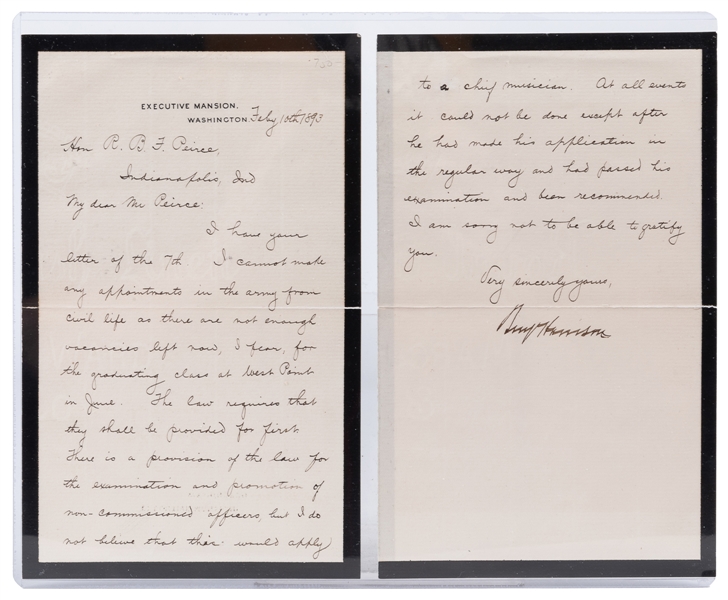 EXECUTIVE MANSION.
WASHINGTON. Feby 10th 1893
Hon R. B. F. Peirce,
Indianapolis, Ind
My dear Mr Peirce:
I have your
letter of the 7th. I cannot make
any appointments in the army from
civil life as there are not enough
vacancies left now, I fear, for
the graduating class at West Point
in June. The law requires that
they shall be provided for first.
There is a provision of the law for
the examination and promotion of
non-commissioned officers, but I do
not believe that this would apply
to a chief musician. At all events
it could not be done except after
he had made his application in
the regular way and had passed his
examination and been recommended.
I am sorry not to be able to gratify
you.
Very sincerely yours,
Benj Harrison